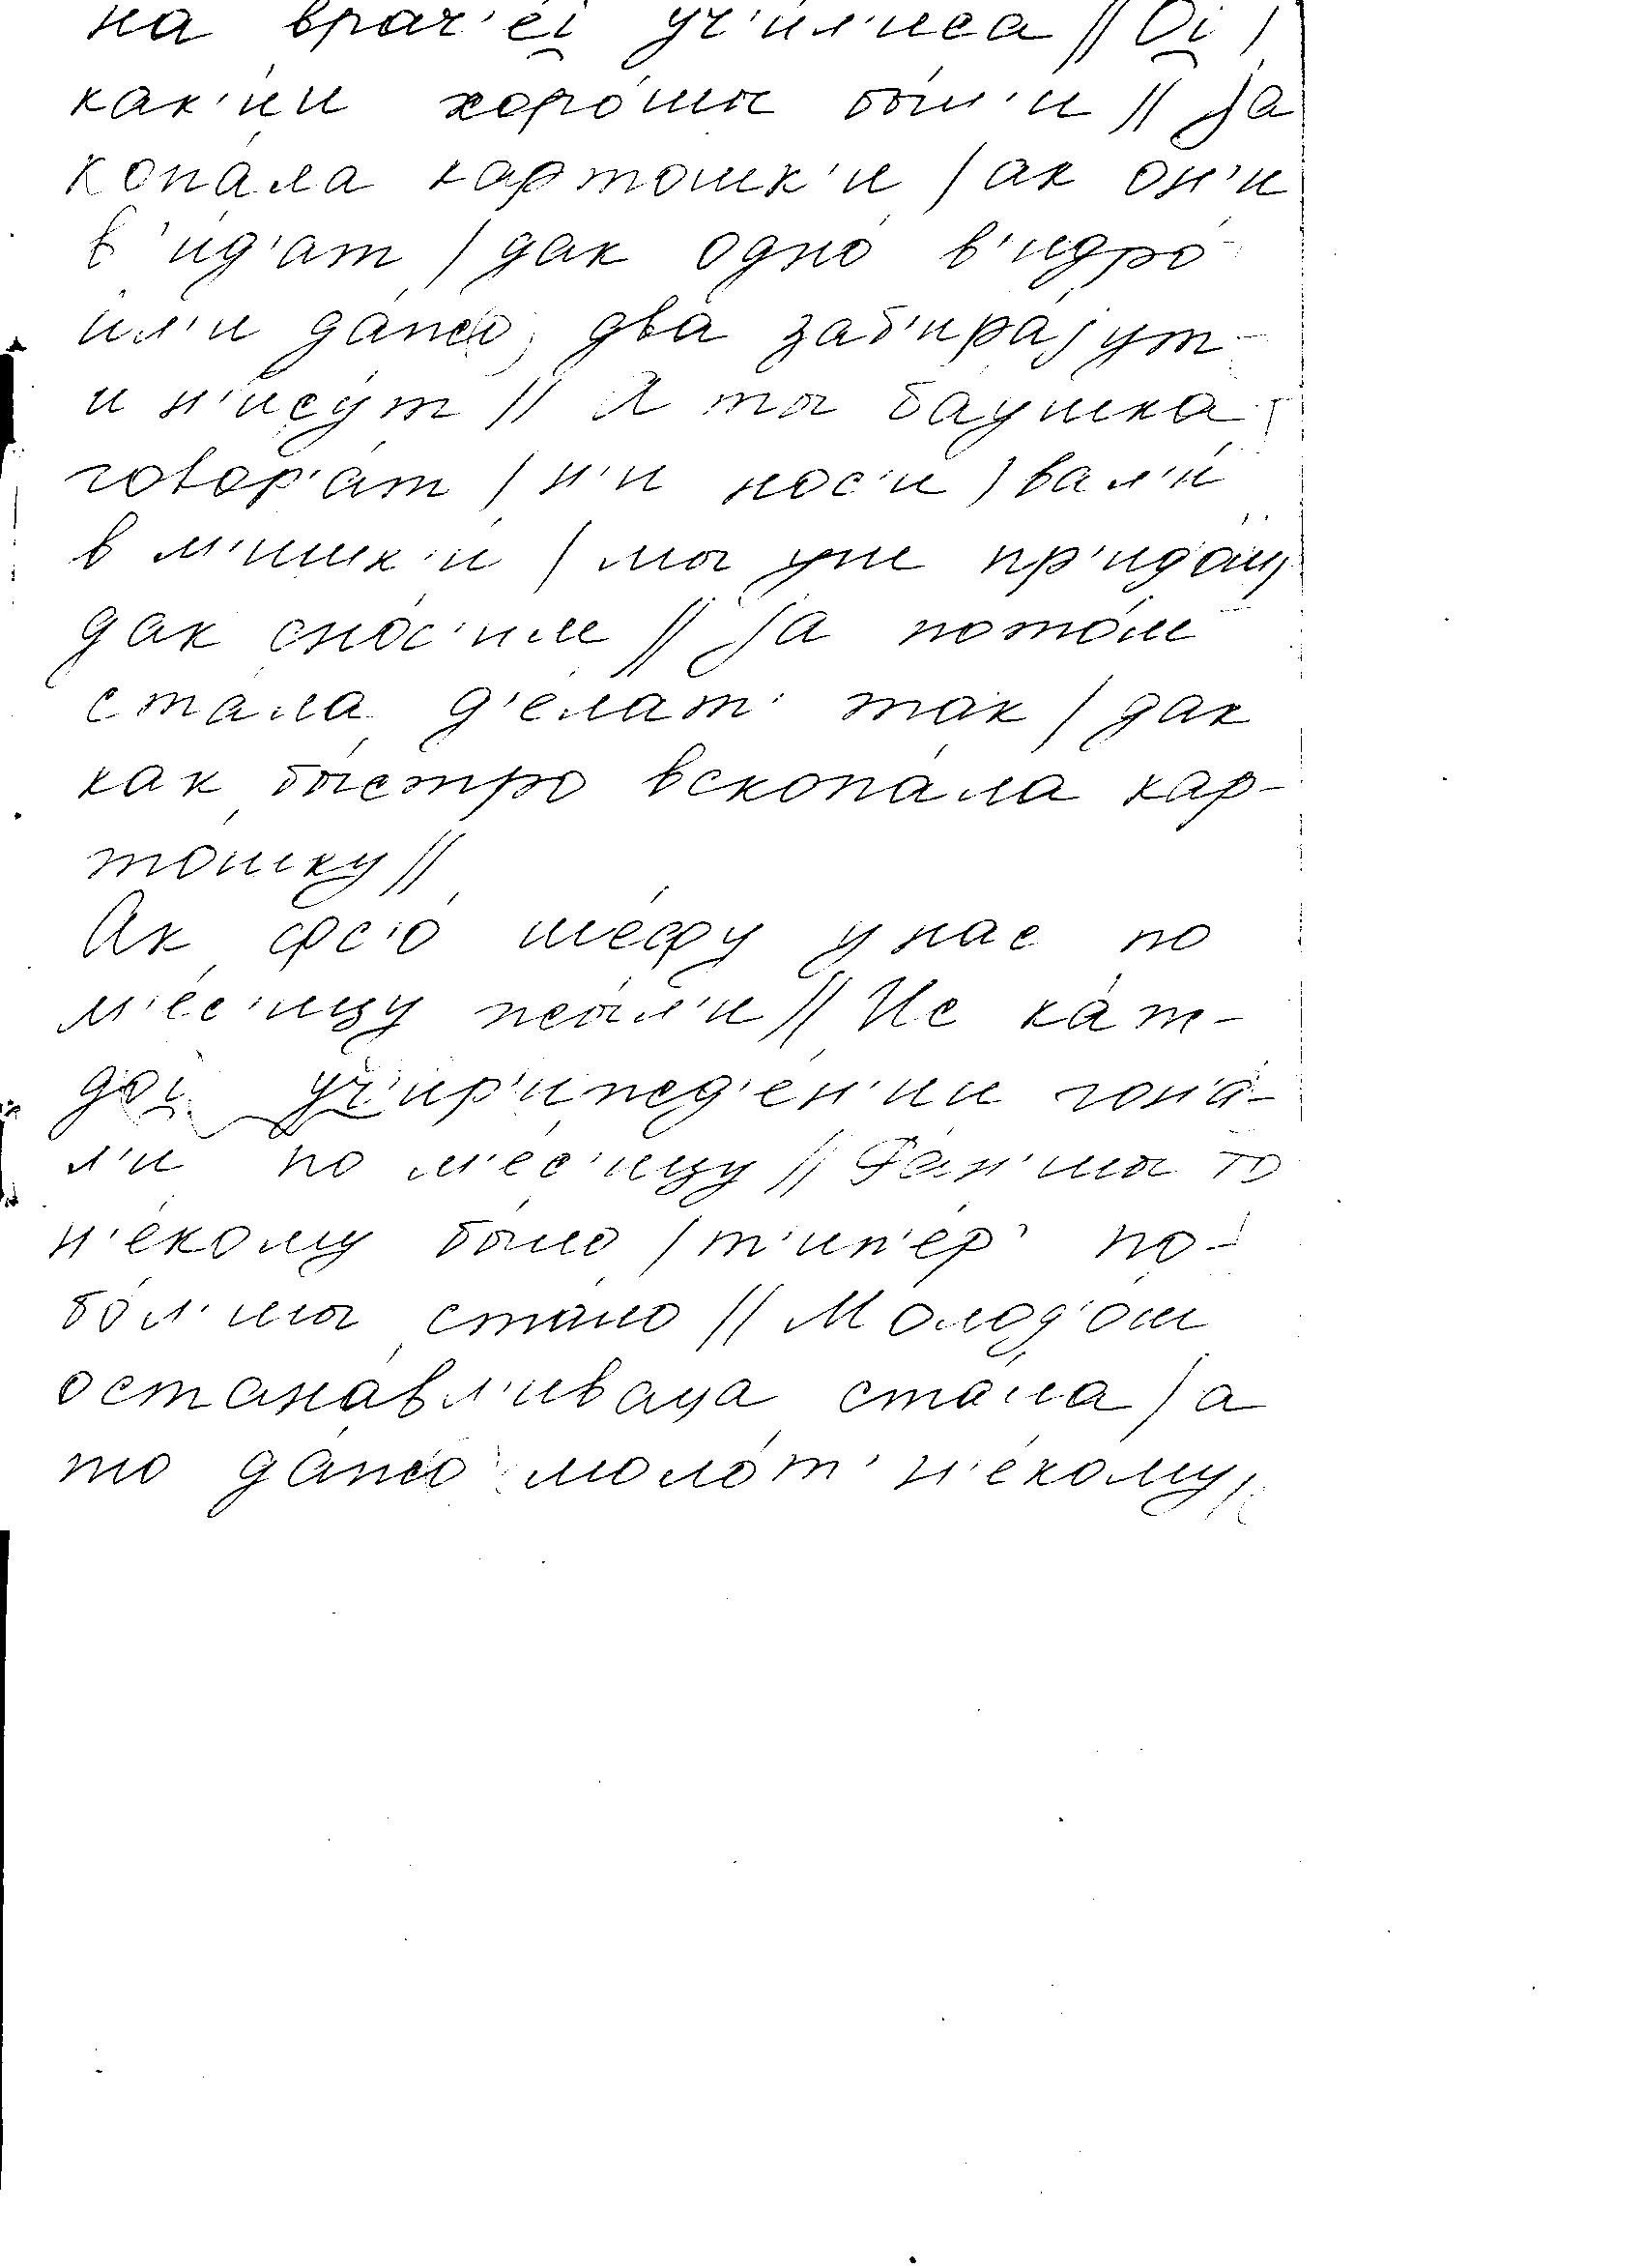 на врач'е́i̯ уч'и́л'иса // Оi̯ /
как'и́и хоро́шы бы́л'и // jа
копа́ла картошк'и / ак он'и
в'и́д'ат / дак одно́ в'идро́
и́л'и да́жо, два заб'ира́jут
и н'ису́т // А ты ба́ушка
говор'а́т / н'и нос'и / вал'и́
в м'ишк'и́ / мы уже пр'ид'о́м
дак сно́с'им // jа пото́м
ста́ла д'е́лат' так / дак
как бы́стро вскопа́ла кар-
то́шку //
Ак фс'о́ ше́фу у нас по
м'е́с'ицу жы́л'и // Ис ка́ж-
доi̯ уч'ир'ижд'е́н'ии гон'а́-
л'и по м'е́с'ицу // Ра́н'шы то
н'е́кому бы́ло / т'ип'е́р' по-
бо́л'шы ста́ло // Молод'о́ш
остана́вл'иваца ста́ла / а
то да́жо моло́т' н'е́кому //